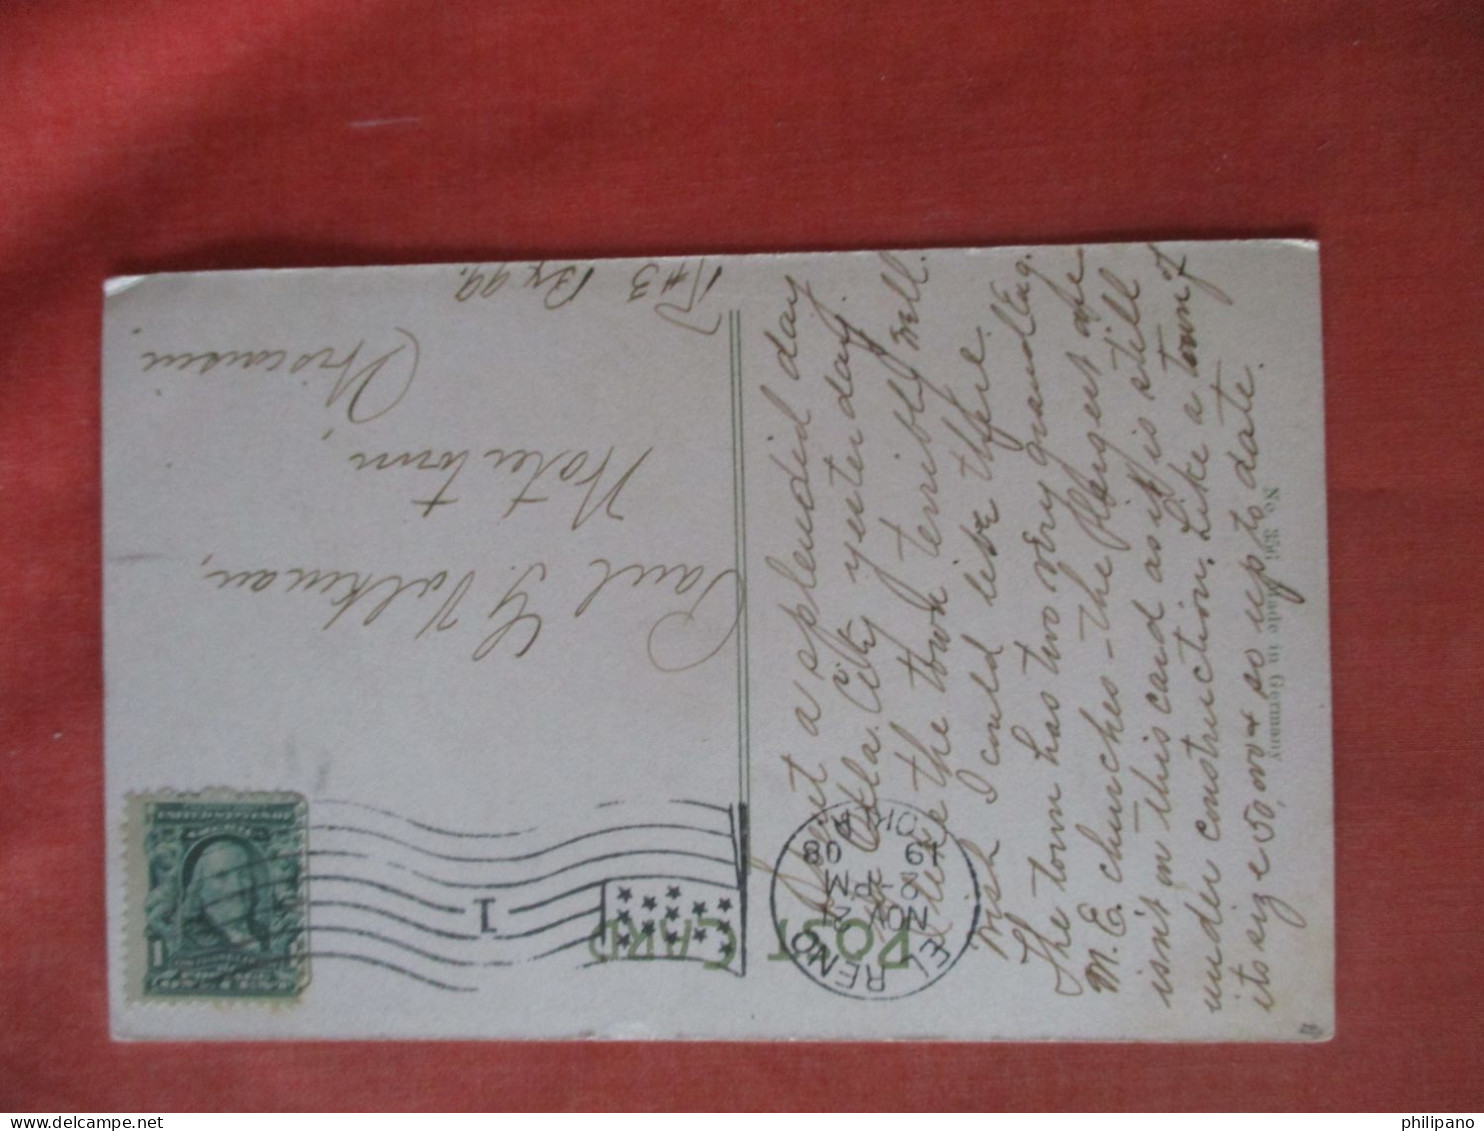 POST CARD
EL RENO
NOV 21
2-PM
19 08
OKLA
1
Spent a splendid day
in Okla. City yesterday.
I love the town terribly well.
wish I could live there.
The town has two very grand Eng.
M. E. churches - the largest one
isn't on this card as it is still
under construction. Like a town of
its size 50,000 & so up to date.
Paul G. Volkman,
Watertown,
Wisconsin
R#3 Bx 99.
Made in Germany
philipano
delcampe.net